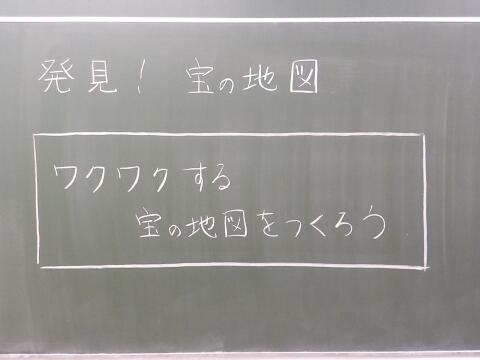 発見！ 宝の地図
ワクワクする
宝の地図をつくろう